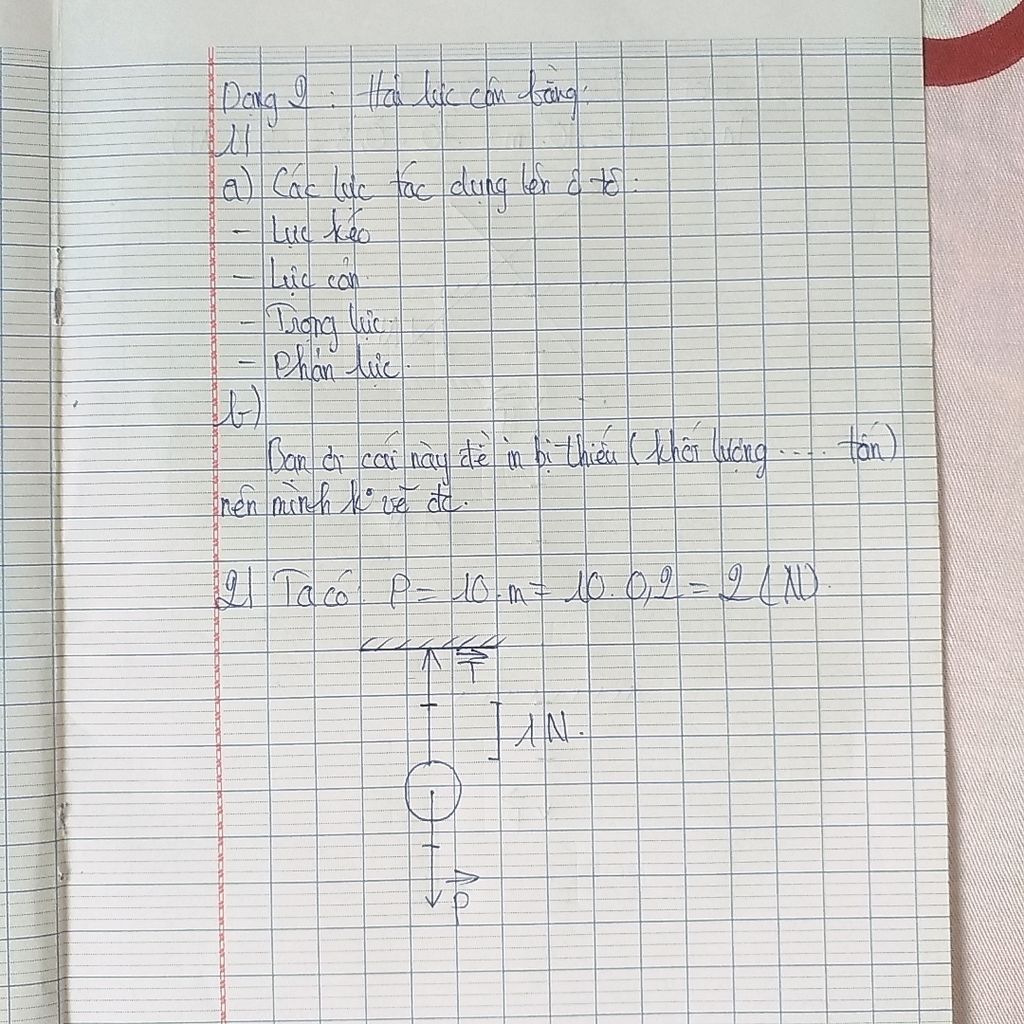 Dạng 2 : Hai lực cân bằng.
1/
a) Các lực tác dụng lên ô tô:
- Lực kéo
- Lực cản
- Trọng lực
- Phản lực.
b)
Bạn ơi cái này đề in bị thiếu (khối lượng .... tấn)
nên mình k° vẽ đc.
2/ Ta có P = 10.m = 10. 0,2 = 2 (N).
T
1N.
P